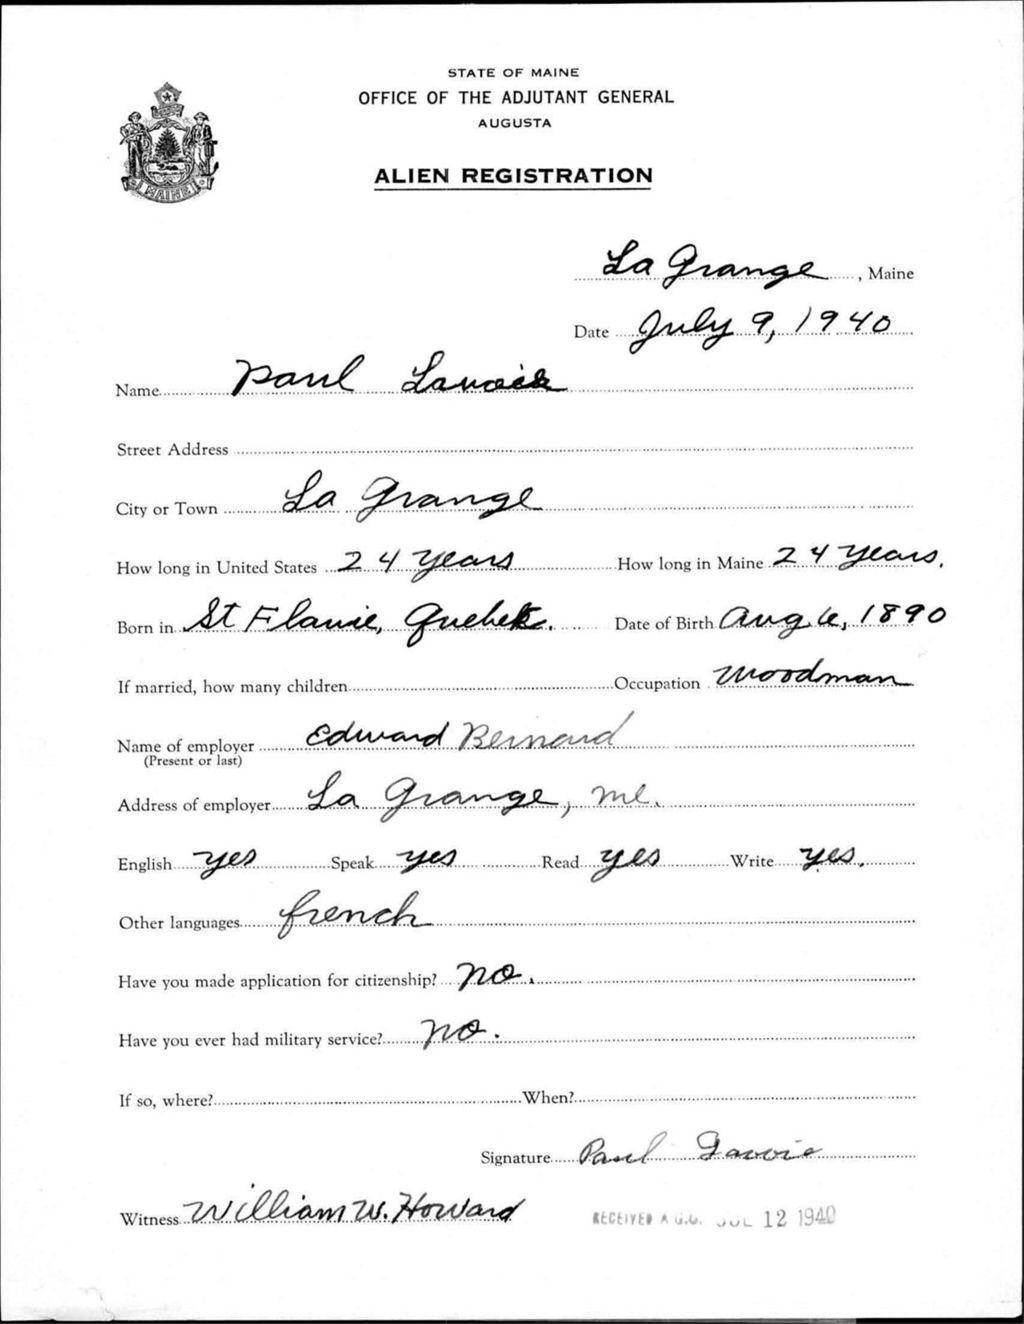 STATE OF MAINE
OFFICE OF THE ADJUTANT GENERAL
AUGUSTA
ALIEN REGISTRATION
MAINE
La Grange, Maine
Date July 9, 1940
Name Paul
Street Address
City or Town La Grange
How long in United States 24 years How long in Maine 24 years.
Born in St Flavie, Quebek. Date of Birth Aug 6, 1890
If married, how many children Occupation Woodman
Name of employer Edward Bernard
(Present or last)
Address of employer La Grange, Me.
English yes Speak yes Read yes Write yes.
Other languages french
Have you made application for citizenship? no.
Have you ever had military service? no.
If so, where? When?
Signature Paul
Witness William W. Howard
RECEIVED A.G.O. JUL 12 1940